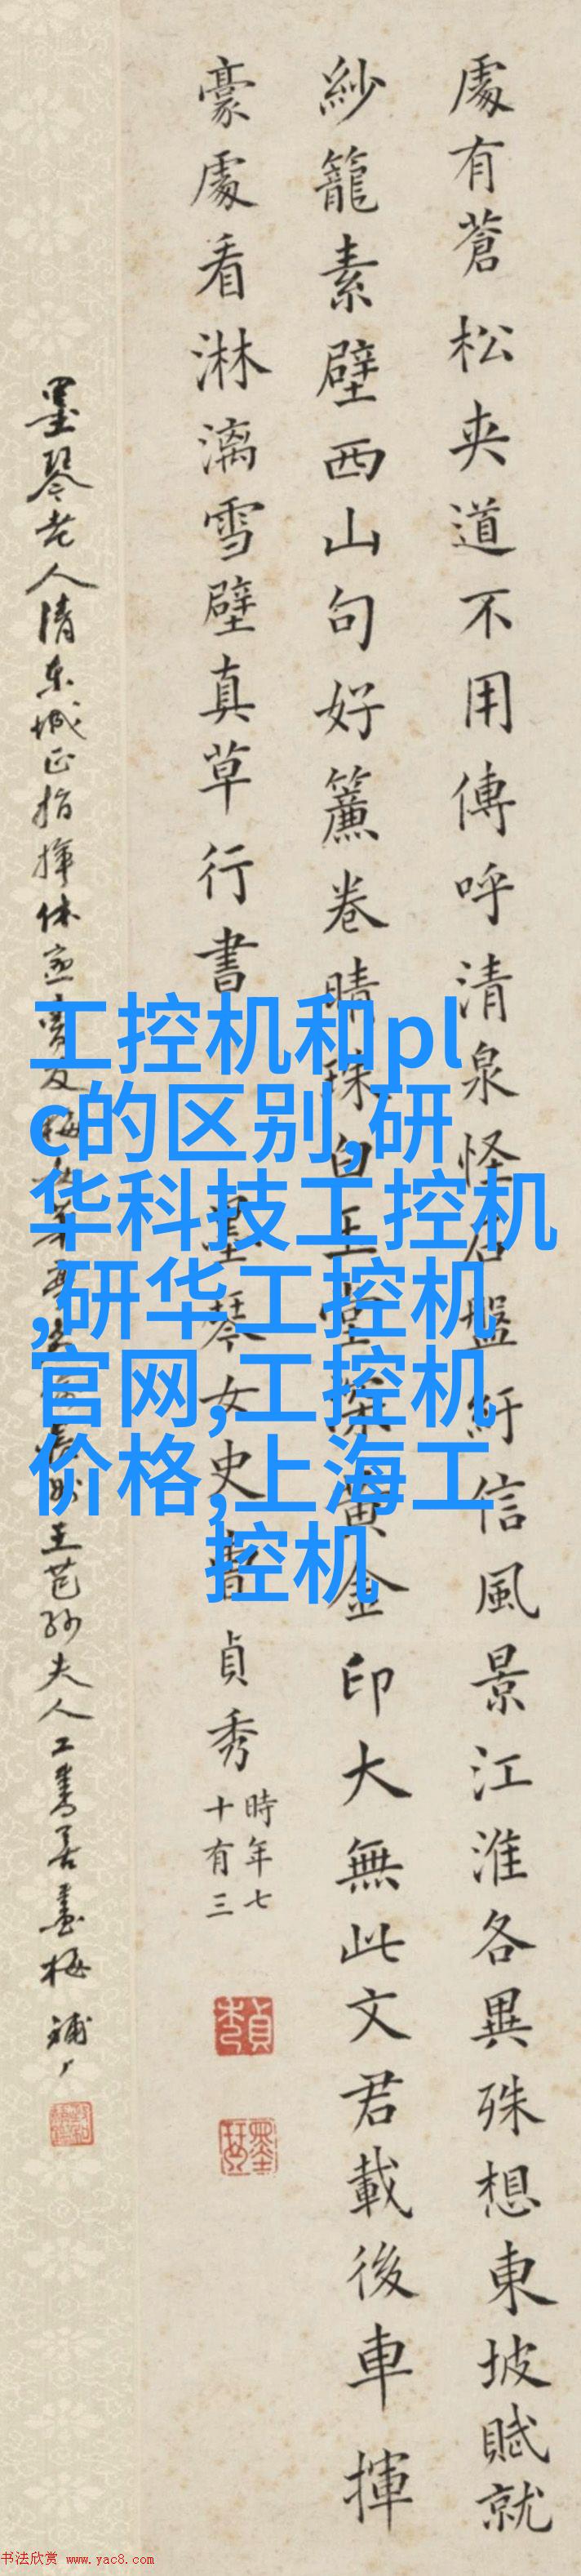 處有蒼松夾道不用傳呼清泉怪石盤紆信風景江淮各異殊想東坡賦就
紗籠素壁西山句好簾卷晴珠白玉堂深黃金印大無此文君載後車揮
豪處看淋漓雪壁真草行書
墨琴女史曹貞秀
時年七
十有三
貞秀
墨琴
墨琴老人清东城正指挥 王芑孙夫人工書善畫梅
工控机和pl
c的区别,研
华科技工控机
,研华工控机
官网,工控机
价格,上海工
控机
书法欣赏 www.yac8.com